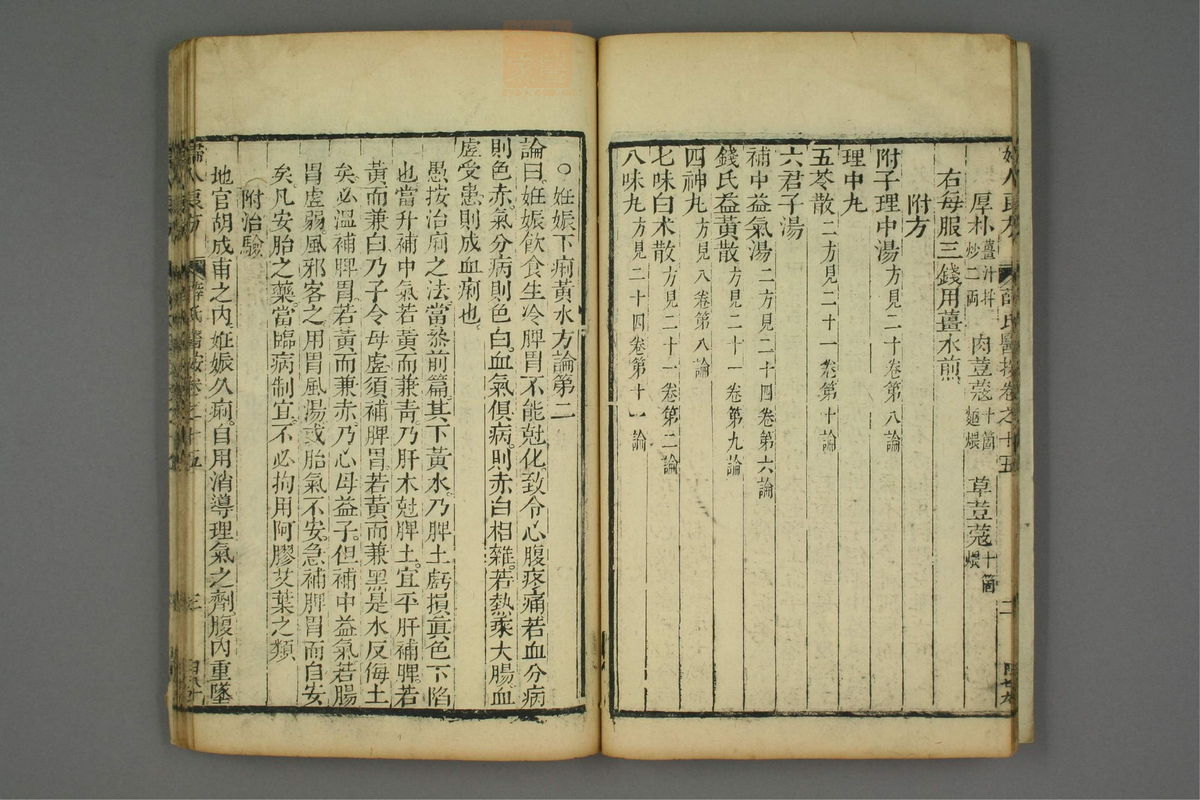 厚朴薑汁拌炒二両　肉荳蔲十箇麵煨　草荳蔲十箇煨
右每服三錢用薑水煎
附方
附子理中湯方見二十卷第八論
理中丸
五苓散二方見二十一卷第十論
六君子湯
補中益氣湯二方見二十四卷第六論
錢氏益黃散方見二十一卷第九論
四神丸方見八卷第八論
七味白术散方見二十一卷第二論
八味丸方見二十四卷第十一論
○妊娠下痢黃水方論第二
論曰妊娠飲食生冷脾胃不能尅化致令心腹疼痛若血分病
則色赤氣分病則色白血氣俱病則赤白相雜若熱乘大腸血
虛受患則成血痢也
愚按治痢之法當叅前篇其下黃水乃脾土虧損眞色下陷
也當升補中氣若黃而兼青乃肝木尅脾土宜平肝補脾若
黃而兼白乃子令母虛須補脾胃若黃而兼黑是水反侮土
矣必溫補脾胃若黃而兼赤乃心母益子但補中益氣若腸
胃虛弱風邪客之用胃風湯或胎氣不安急補脾胃而自安
矣凡安胎之藥當臨病制宜不必拘用阿膠艾葉之類
附治驗
地官胡成甫之内妊娠久痢自用消導理氣之劑腹内重墜